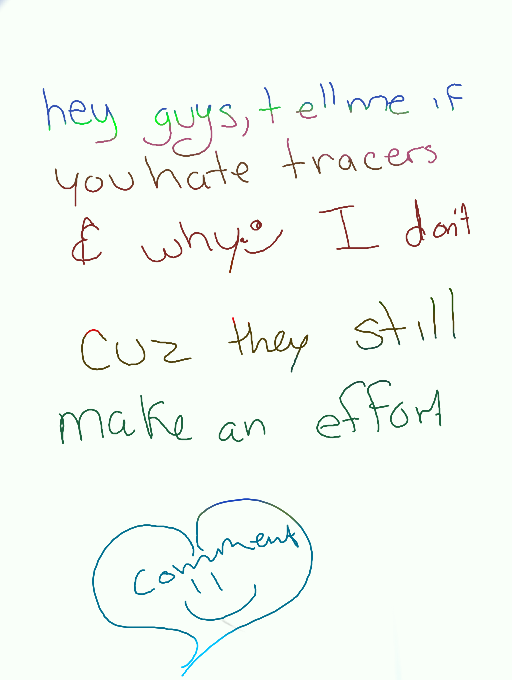 hey guys, tell me if
you hate tracers
& why :) I don't
cuz they still
make an effort
comment